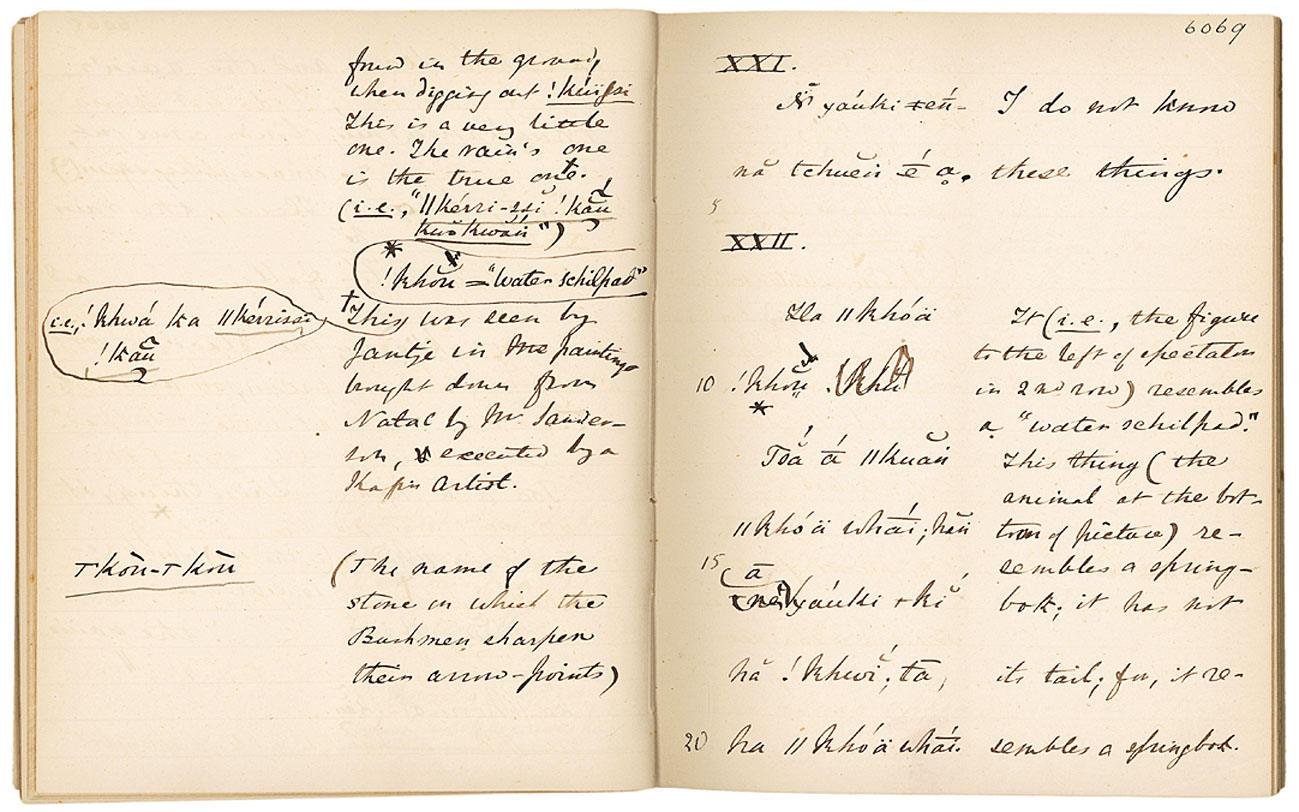 found in the ground,
when digging out !kúïssi
This is a very little
one. The rain's one
is the true one.†
(i.e., "||kérri-ssĭ !kău̇
kuŏkwăń")
* !khŏu̇ = "water schilpad"
i.e., !khwá ka ||kérrissi
!kău̇
†This was seen by
Jantje in the paintings
brought down from
Natal by Mr Sander-
son, & executed by a
Kafir artist.
Tkŏ̄n-Tkŏ̄n
(The name of the
stone on which the
Bushmen sharpen
their arrow-points)
6069
XXI.
Ň yáuki ǂeń-
I do not know
nă tchuĕń é ạ.
these things.
5
XXII.
Ha ||khóä
It (i.e., the figure
to the left of spectator
10 !khŏu̇.
in 2nd row) resembles
*
a "water schilpad."
Tŏắ á ||kuăń
This thing (the
animal at the bot-
||khóä whāí; hăń
tom of picture) re-
15
sembles a spring-
ā
yáuki +kĭ́
bok; it has not
hă !khwĭ́; tā,
its tail; for, it re-
20 ha ||khóä whāí.
sembles a springbok.